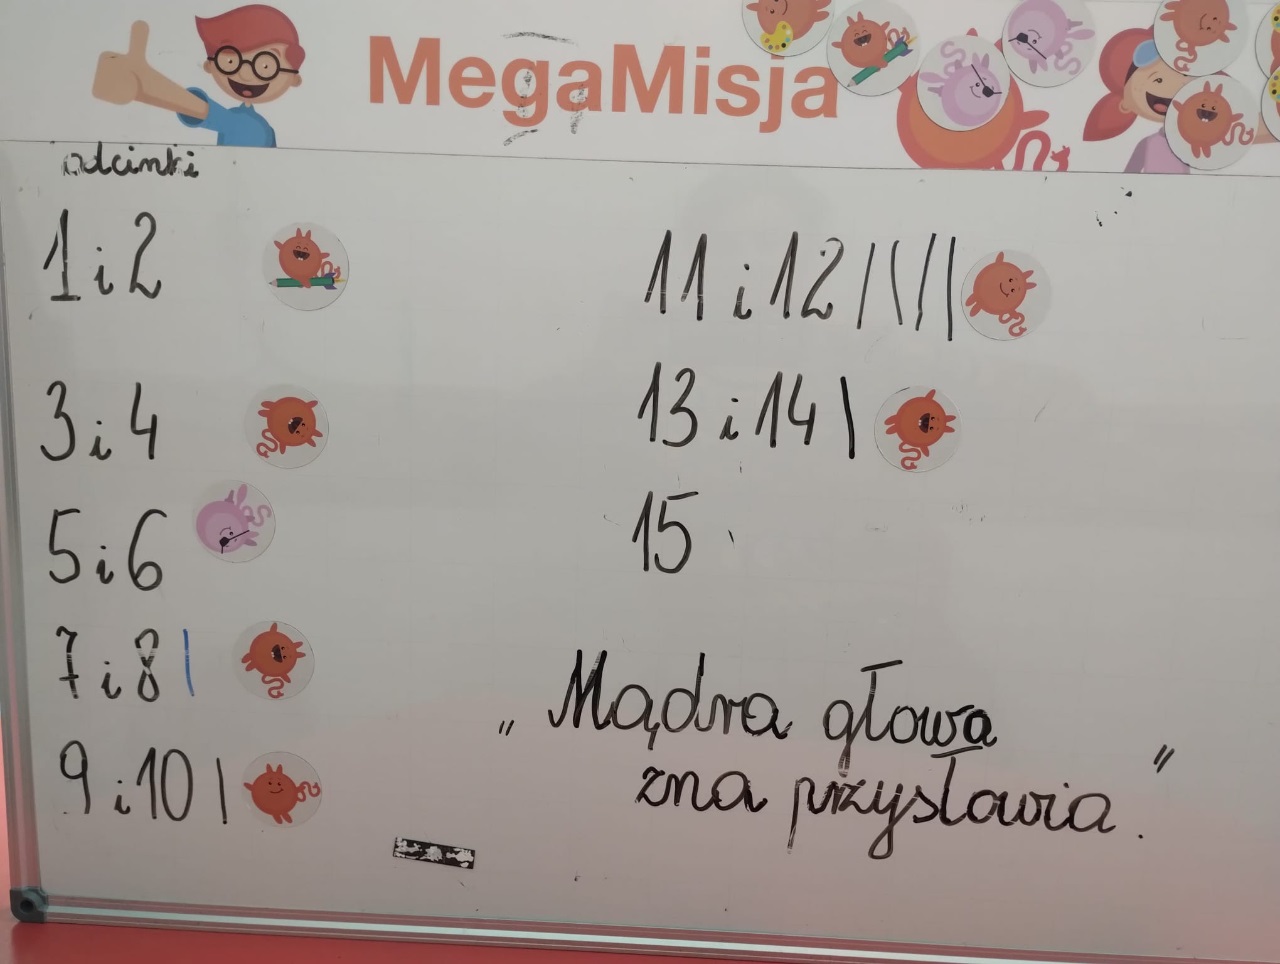 MegaMisja
odcinki
1 i 2
3 i 4
5 i 6
7 i 8 |
9 i 10 |
11 i 12 |||||
13 i 14 |
15
„Mądra głowa
zna przysłowia."